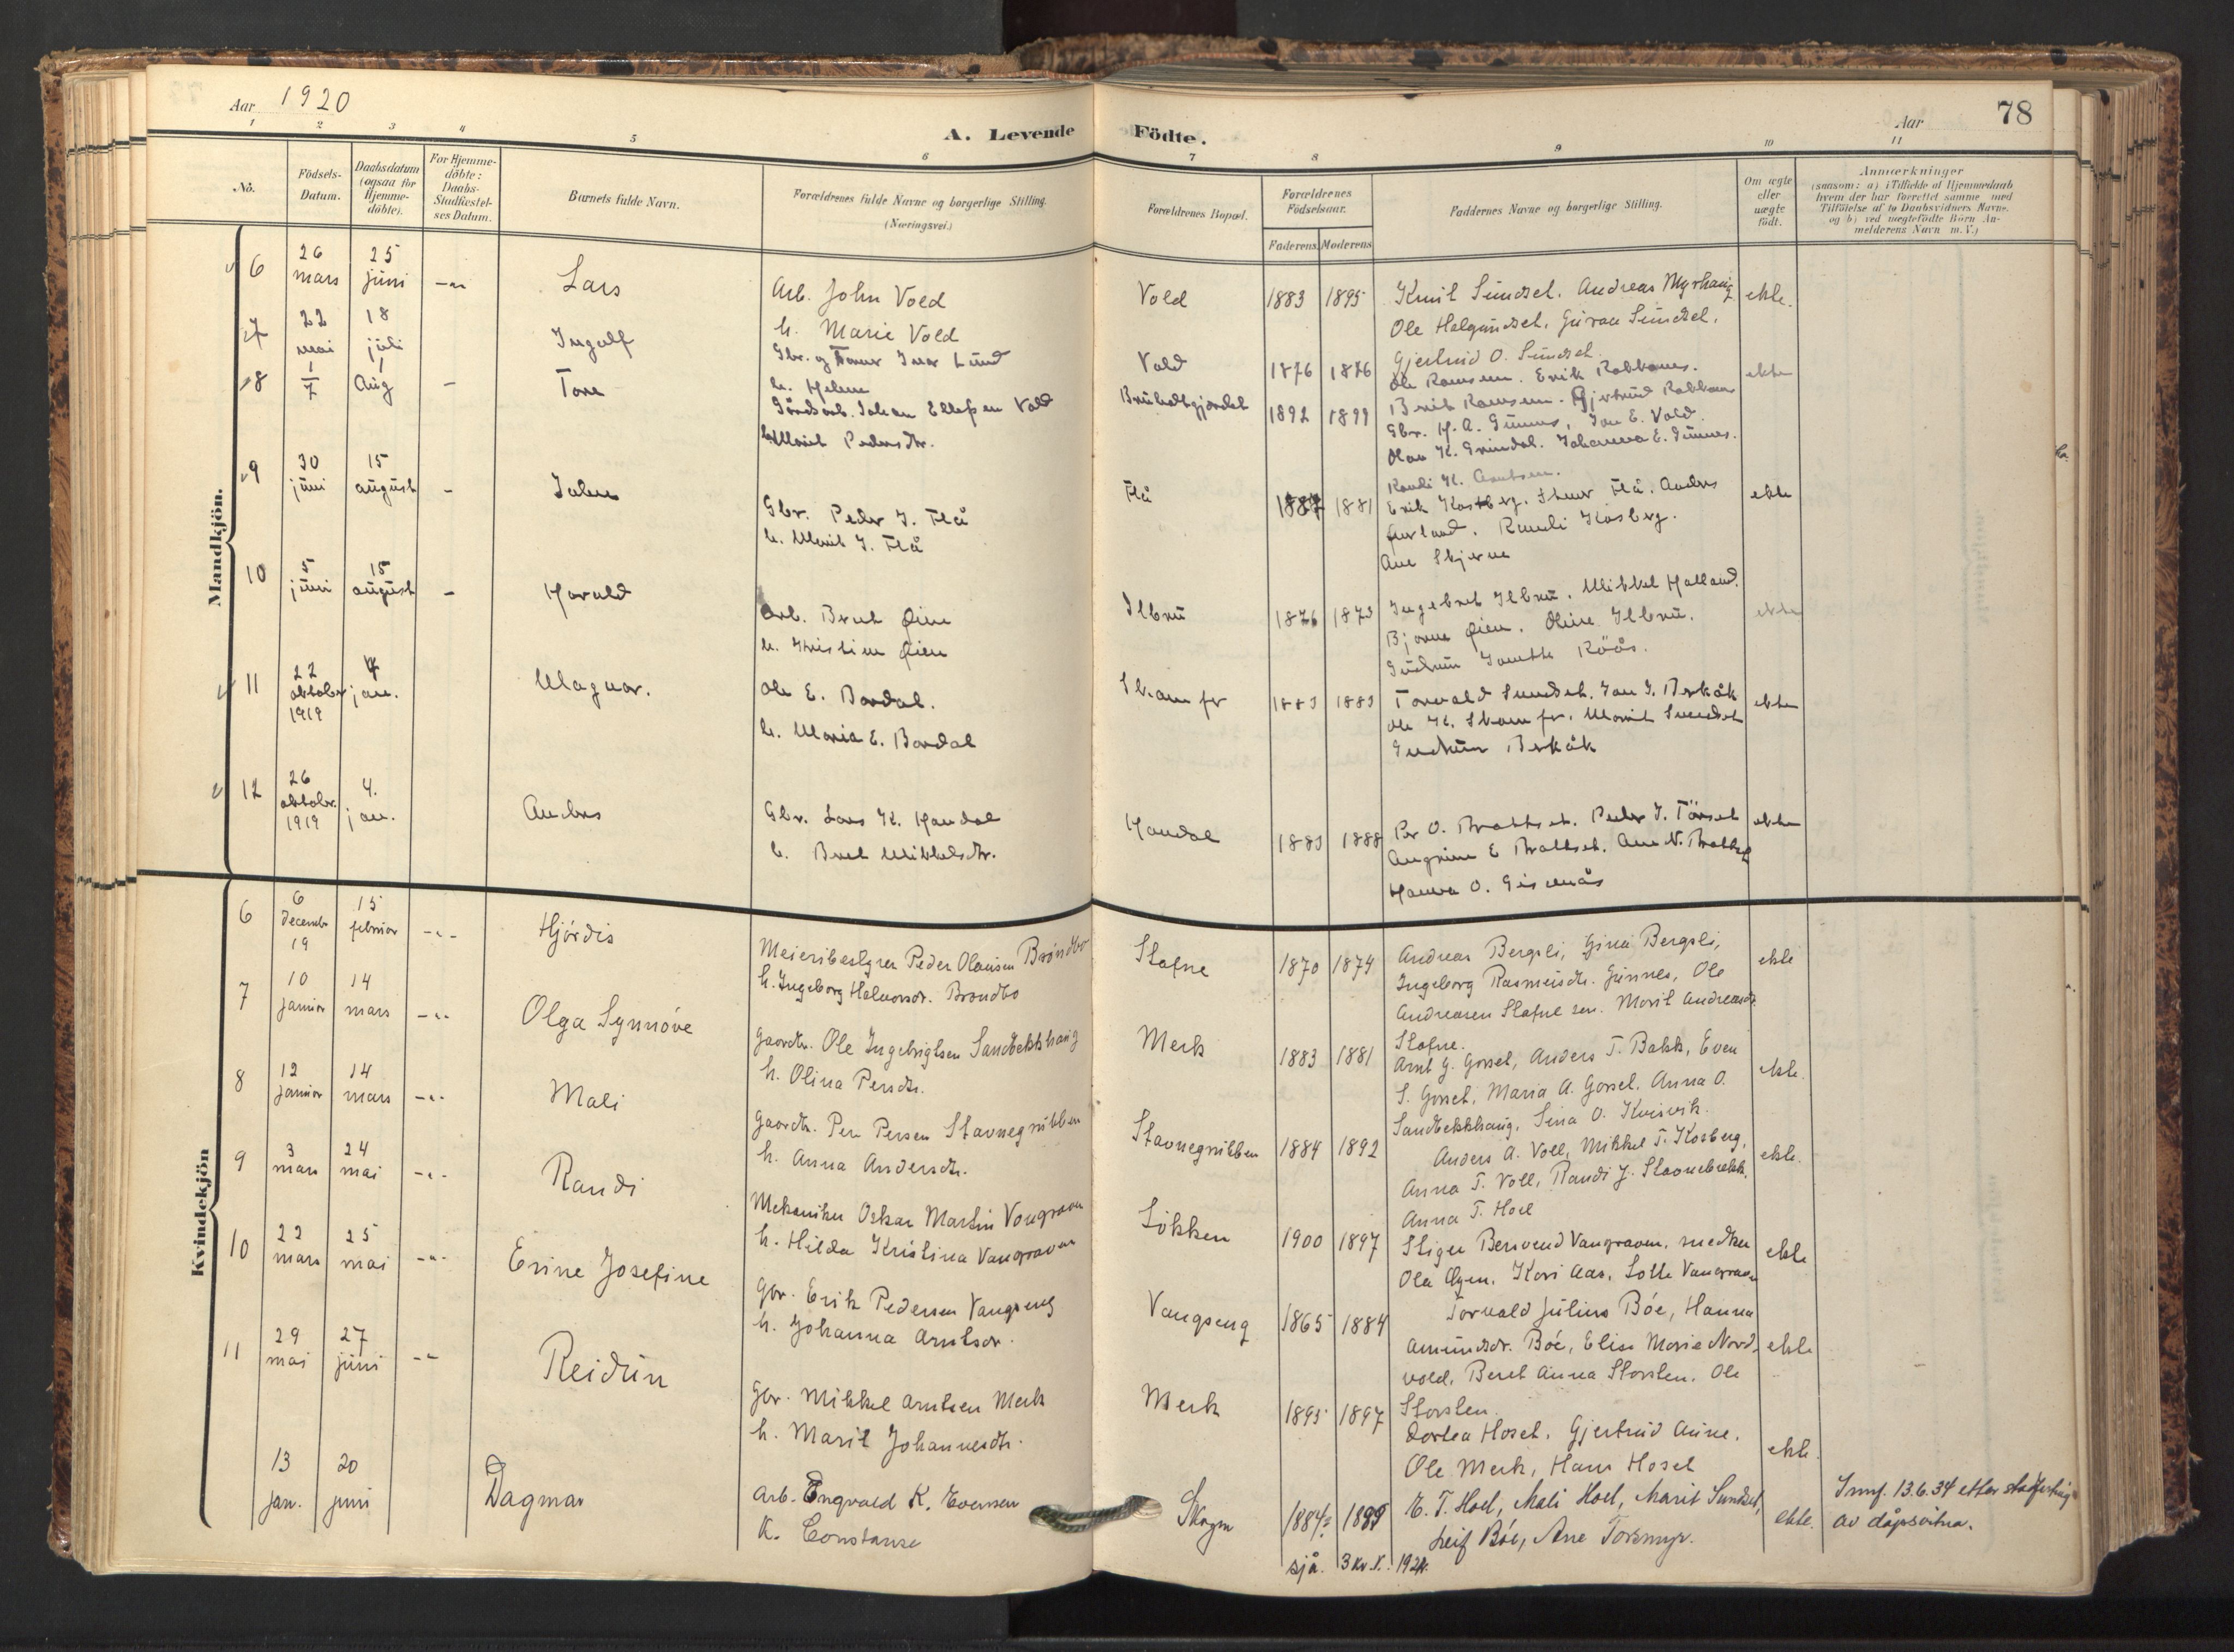 Aar 1920
A. Levende Födte.
Aar
78
1 2 3 4 5 6 7 8 9 10 11
No.
Födsels-Datum.
Daabsdatum (ogsaa for Hjemme-döbte).
For Hjemme-döbte: Daabs-Stadfæstel-ses Datum.
Barnets fulde Navn.
Forældrenes fulde Navne og borgerlige Stilling. (Næringsvei.)
Forældrenes Bopæl.
Forældrenes Födselsaar.
Faderens. Moderens
Faddernes Navne og borgerlige Stilling.
Om ægte eller uægte født.
Anmærkninger
(saasom: a) i Tilfælde af Hjemmedaab
hvem der har forrettet samme med
Tilföielse af to Daabsvidners Navne.
og b) ved uægtefödte Börn An-
melderens Navn m. V.)
Mandkjön.
6 26 mars 25 juni Lars
Arb. John Vold
h. Marie Vold
Vold 1883 1895
Andreas Myrhaug
ekte.
7 22 mai 18 juli Ingolf
Gbr. og Ivar Lund
h. Helene
Vold 1876 1876
Gjertrud O. Sundset.
ekte
8 1/7 1 Aug - Tore
Johan Ellefsen Vold
h. Marit Pedersdtr.
1892 1899
Gbr. H. A. Gunnes, Jon E. Vold.
Olav K. Grindal. Johanna E. Gunnes.
Randi K. Arntsen.
9 30 juni 15 august - John
Gbr. Peder J. Flå
h. Marit J. Flå
Flå 1887 1881
Flå. Anders
Randi Kosberg.
Ane Skjerve
ekte
10 5 juni 15 august - Harald
Arb. Beret Øien
h. Kristine Øien
Ilbru 1876 1873
Ingebret Ilbru. Mikkel Halland.
Bjarne Øien. Oline Ilbru.
Gudrun Röös.
ekte
11 22 oktober 1919 4 jan. Magnar.
Ole E. Bardal.
h. Maria E. Bardal
Skamfer 1883 1883
Torvald Sundset. Jon J. Berkåk
Ole K. Skamfer. Marit Sundset
Gudrun Berkåk
ekte
12 26 oktober. 1919 4. jan. Anders
Gbr. Lars K. Haudal
h. Beret Mikkelsdtr.
Haudal 1883 1888
Per O. Brattset. Peder J. Törset
Angrim E Brattset. Ane N. Brattset
Hanna O. Gisnås
ekte
Kvindekjön
6 6 decembr 19 15 februar Hjördis
Meieribestyrer Peder Olausen Bröndbo
h. Ingeborg Halvorsdr. Bröndbo
Stafne 1870 1874
Andreas Bergsli, Gina Bergsli,
Ingeborg Rasmusdtr. Gunnes, Ole
Andreasen Stafne sen. Marit Andreasdr.
Stafne.
ekte
7 10 januar 14 mars Olga Synnöve
Gaardbr. Ole Ingebrigtsen Sandbekkhaug
h. Olina Persdtr.
Merk 1883 1881
Arnt G. Gorset, Anders T. Bakk, Even
S. Gorset, Maria A. Gorset. Anna O.
Sandbekkhaug, Sina O. Kvisvik.
ekte.
8 12 januar 14 mars Mali
Gaardbr. Per Persen Stavnegrubben
h. Anna Andersdtr.
Stavnegrubben 1884 1892
Anders A. Voll, Mikkel T. Kosberg,
Anna T. Voll, Randi J. Stavnebrekk.
Anna T. Hoel
ekte.
9 3 mars 24 mai Randi
Mekaniker Oskar Martin Vangraven
h. Hilda Kristina Vangraven
Løkken 1900 1897
Stiger Bernvend Vangraven, snedker
Ola Øyen, Kari Aas, Lotte Vangraven
ekte
10 22 mars 25 mai Erine Josefine
Gbr. Erik Pedersen Vangseng
h. Johanna Arntsdr.
Vangseng 1865 1884
Torvald Julius Böe, Hanna
Amundsdr. Böe, Elise Marie Nord-
vold, Beret Anna Storslen. Ole
Storslen.
ekte
11 29 mai 27 juni Reidun
Gbr. Mikkel Arntsen Merk
h. Marit Johannesdtr.
Merk 1895 1897
Dortea Hoset. Gjertrud Aune.
Ole Merk, Hans Hoset
ekte.
13 jan. 20 juni Dagmar
Arb. Engvald K. Evensen
K. Constanse
Skogn 1884 1889
E. T. Hoel, Mali Hoel, Marit Sundset,
Leif Böe, Ane Torsmyr.
ekte.
Innf. 13.6.34 etter stadfesting
av dåpsvitna.
sjå. 3 Kv. K. 1921.